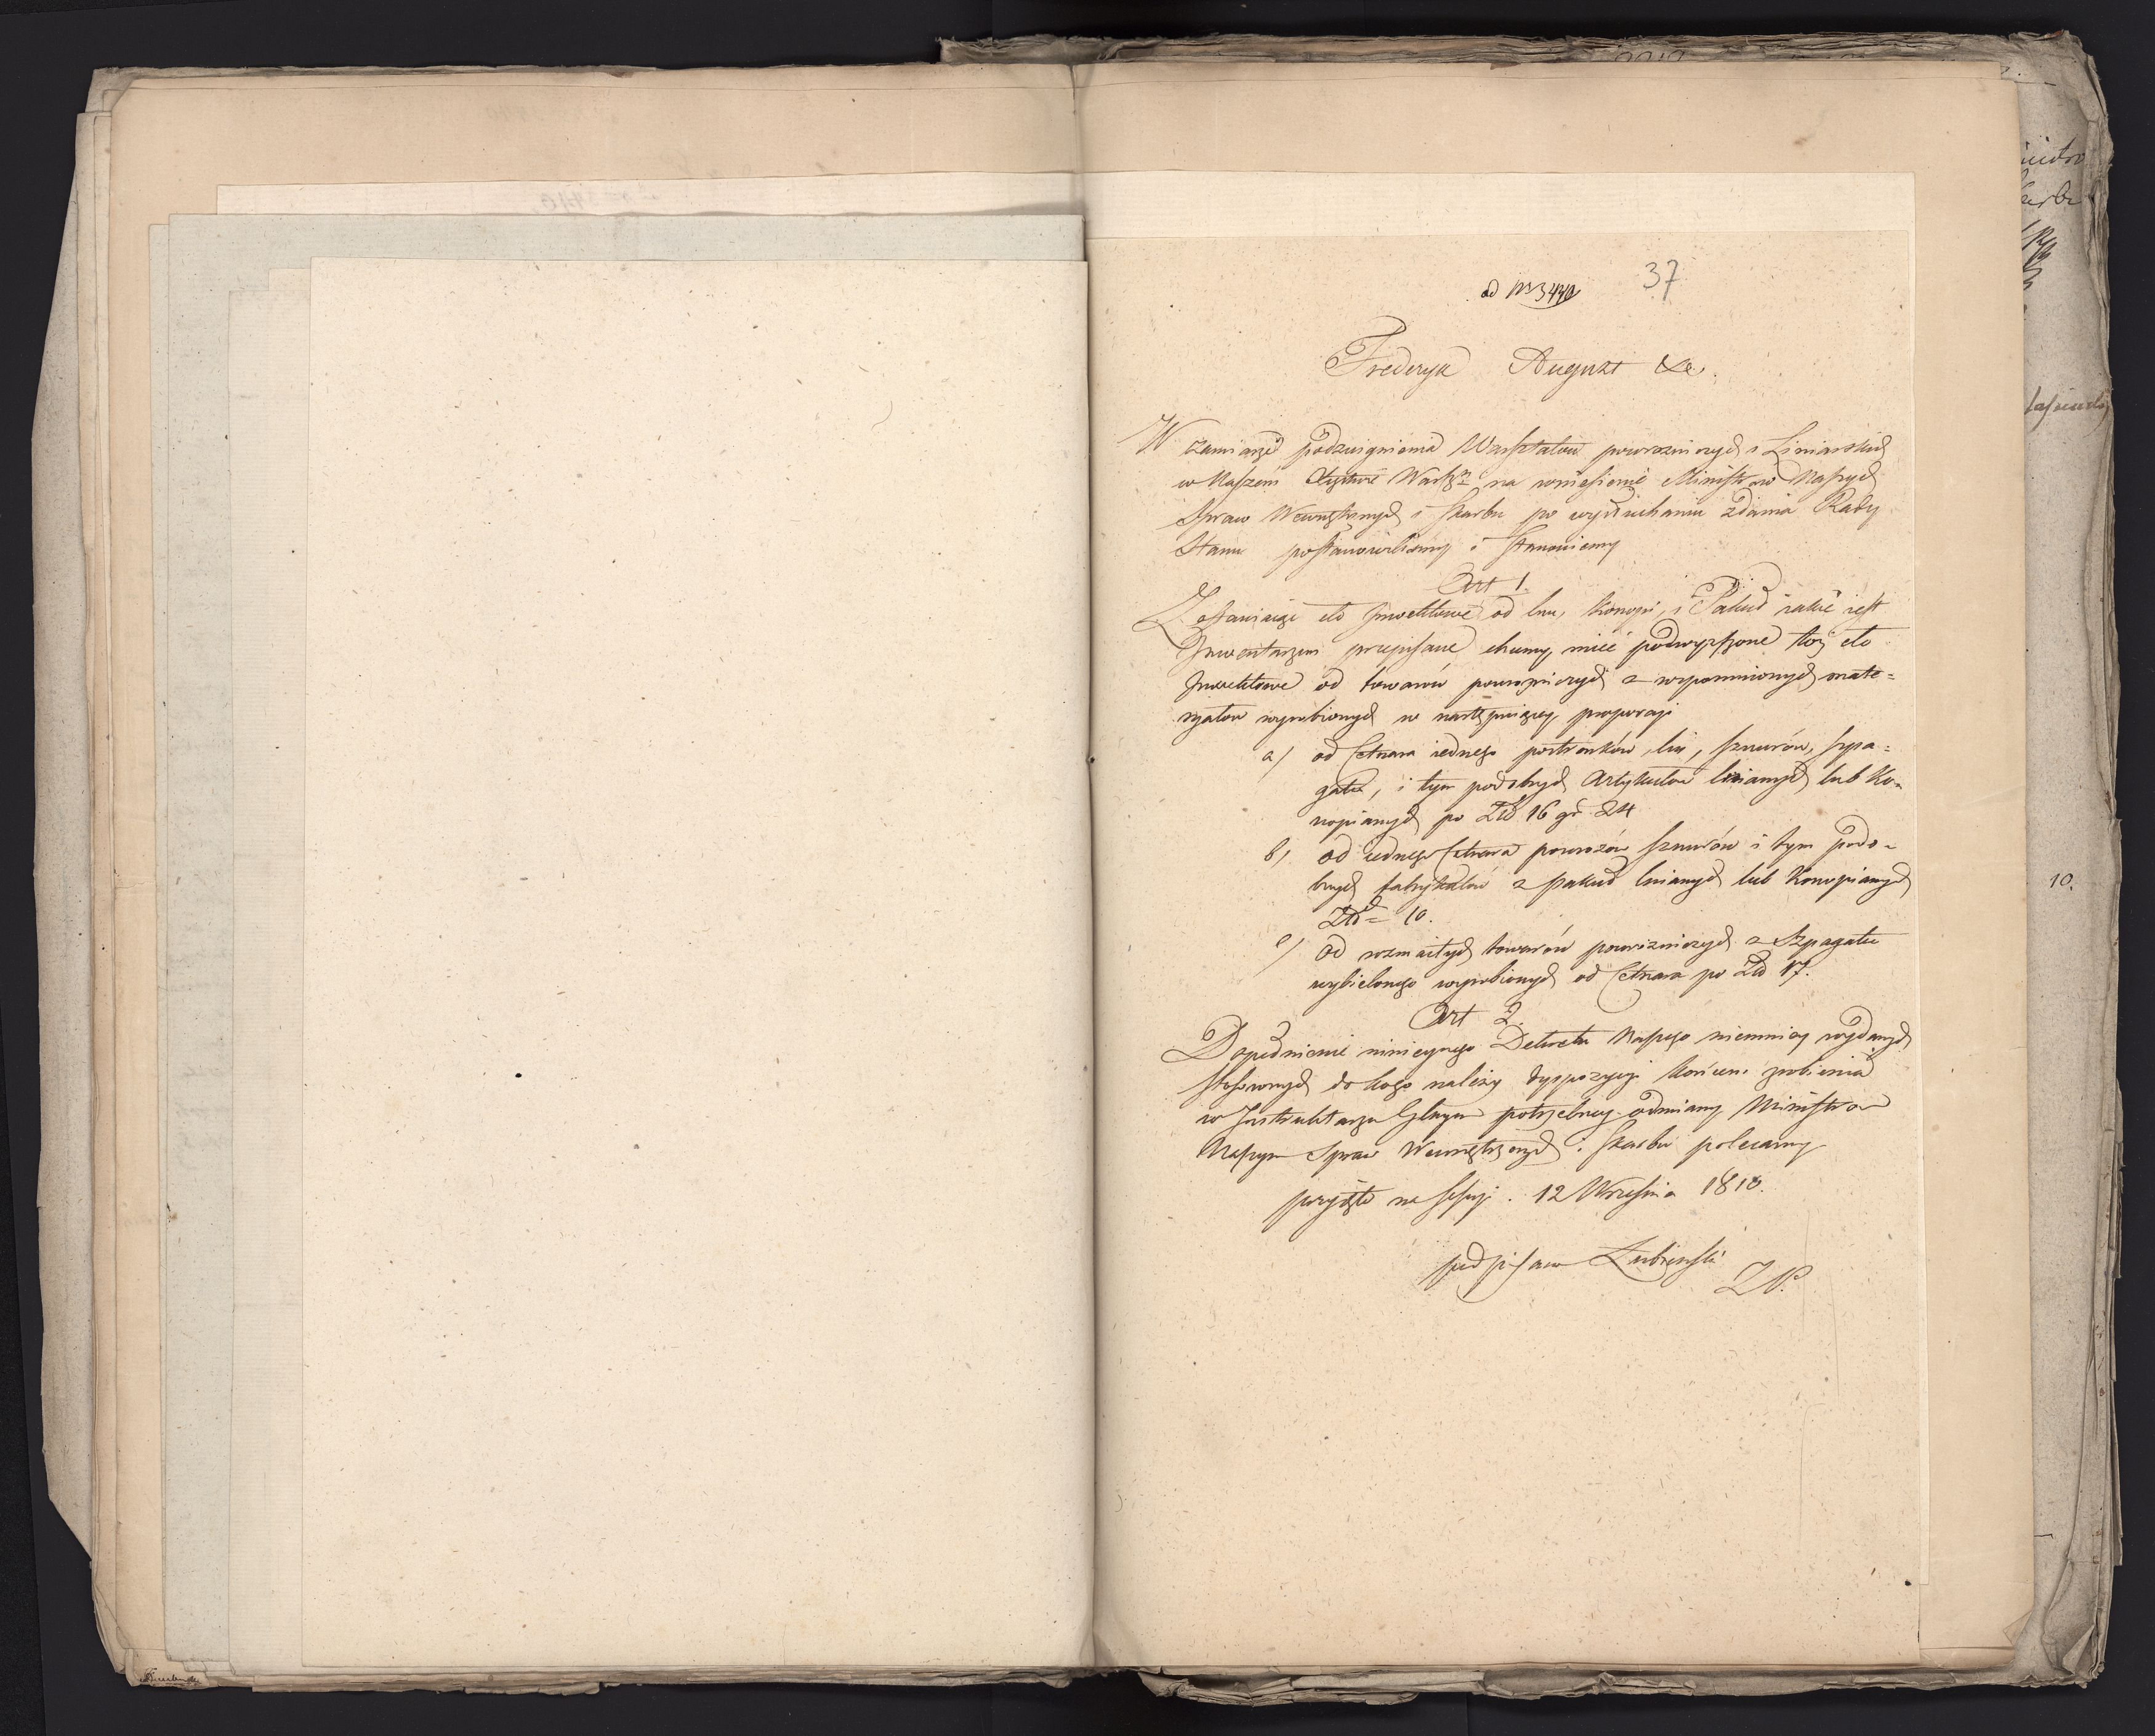 37
ad No 3440
Frederyk August &c.
W zamiarze podzwignienia Warsztatow powrozniczych i Liniarskich
w Naszem Xięstwie Warszm na wniesienie Ministrow Naszych
Spraw Wewnętrznych i Skarbu po wysłuchaniu zdania Rady
Stanu postanowiliśmy i Stanowiemy
Art 1.
Zostawiając cło od lnu, Konopi, i Pakuł iakie iest
przepisane chcemy mieć podwyższone toż cło
od towarów powrozniczych z wspomnionych mate=
ryałow wyrobionych w następuiącey proporcyi
a/ od Cetnara iednego postronków, lin, sznurów, szpa=
gatu, i tym podobnych Artykułow lnianych lub Ko=
nopianych po Złł 16 gr 24
b/ od iednego Cetnara powrozów sznurów i tym podo=
bnych fabrykatów z pakuł lnianych lub Konopianych
10.
c/ od rozmaitych towarów powrozniczych z Szpagatu
wybielonego wyrobionych od Cetnara po Złł 17.
Art 2.
Dopełnienie ninieyszego Dekretu Naszego niemniey wydanych
stosownych do kogo należy dyspozycyi końcem zrobienia
w Instruktarzu Celnym potrzebney odmiany, Ministrom
Naszym Spraw Wewnętrznych i Skarbu polecamy
przyięte na Sessyi. 12 Września 1810.
podpisano Łubieński
10.